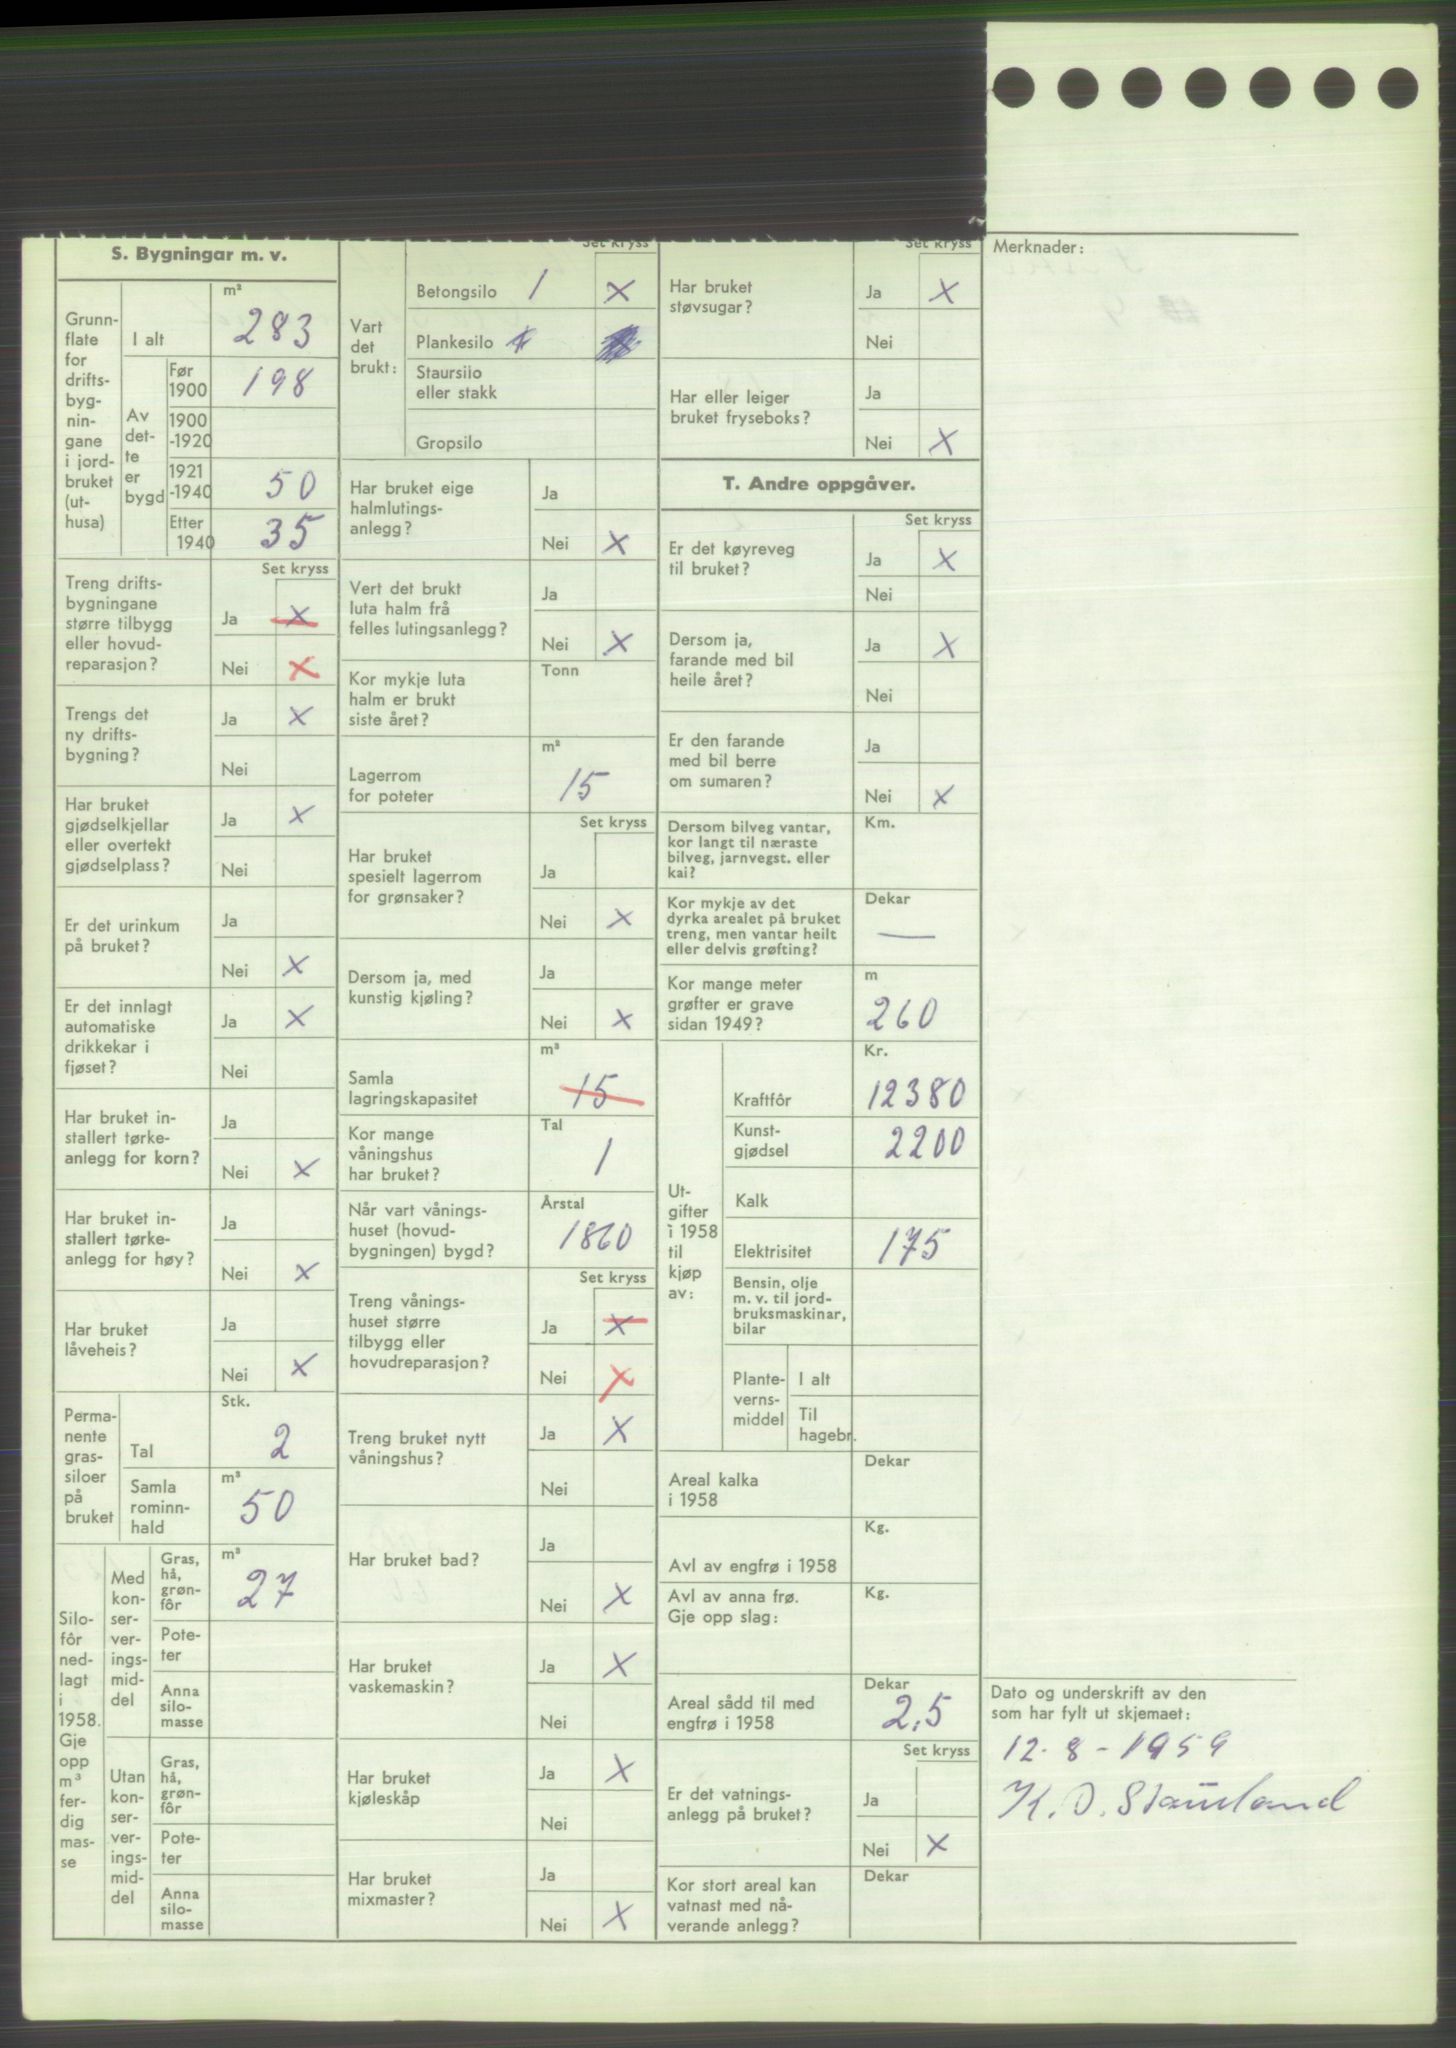 S. Bygningar m. v.
Grunn-
flate
for
drifts-
byg-
nin-
gane
i jord-
bruket
(ut-
husa)
m²
I alt 283
Av
det-
te
er
bygd
Før
1900 198
1900
-1920
1921
-1940 50
Etter
1940 35
Set kryss
Treng drifts-
bygningane
større tilbygg
eller hovud-
reparasjon?
Ja X
Nei X
Trengs det
ny drifts-
bygning?
Ja X
Nei
Har bruket
gjødselkjellar
eller overtekt
gjødselplass?
Ja X
Nei
Er det urinkum
på bruket?
Ja
Nei X
Er det innlagt
automatiske
drikkekar i
fjøset?
Ja X
Nei
Har bruket in-
stallert tørke-
anlegg for korn?
Ja
Nei X
Har bruket in-
stallert tørke-
anlegg for høy?
Ja
Nei X
Har bruket
låveheis?
Ja
Nei X
Perma-
nente
gras-
siloer
på
bruket
Stk.
Tal 2
Samla
rominn-
hald
m³
50
Silo-
fôr
ned-
lagt
i
1958.
Gje
opp
m³
fer-
dig
mas-
se
Med
kon-
ser-
ver-
ings-
mid-
del
Gras,
hå,
grøn-
fôr
m³
27
Pote-
ter
Anna
silo-
masse
Utan
kon-
ser-
ver-
ings-
mid-
del
Gras,
hå,
grøn-
fôr
Pote-
ter
Anna
silo-
masse
Set kryss
Vart
det
brukt:
Betongsilo 1 X
Plankesilo
Staursilo
eller stakk
Gropsilo
Har bruket eige
halmlutings-
anlegg?
Ja
Nei X
Vert det brukt
luta halm frå
felles lutingsanlegg?
Ja
Nei X
Kor mykje luta
halm er brukt
siste året?
Tonn
Lagerrom
for poteter
m³
15
Set kryss
Har bruket
spesielt lagerrom
for grønsaker?
Ja
Nei X
Dersom ja, med
kunstig kjøling?
Ja
Nei X
Samla
lagringskapasitet
m³
15
Kor mange
våningshus
har bruket?
Tal
1
Når vart vånings-
huset (hovud-
bygningen) bygd?
Årstal
1860
Set kryss
Treng vånings-
huset større
tilbygg eller
hovudreparasjon?
Ja X
Nei X
Treng bruket nytt
våningshus?
Ja X
Nei
Har bruket bad?
Ja
Nei X
Har bruket
vaskemaskin?
Ja X
Nei
Har bruket
kjøleskåp
Ja X
Nei
Har bruket
mixmaster?
Ja
Nei X
Set kryss
Har bruket
støvsugar?
Ja X
Nei
Har eller leiger
bruket fryseboks?
Ja
Nei X
T. Andre oppgåver.
Set kryss
Er det køyreveg
til bruket?
Ja X
Nei
Dersom ja,
farande med bil
heile året?
Ja X
Nei
Er den farande
med bil berre
om sumaren?
Ja
Nei X
Dersom bilveg vantar,
kor langt til næraste
bilveg, jarnvegst. eller
kai?
Km.
Kor mykje av det
dyrka arealet på bruket
treng, men vantar heilt
eller delvis grøfting?
Dekar
—
Kor mange meter
grøfter er grave
sidan 1949?
m
260
Ut-
gifter
i 1958
til
kjøp
av:
Kr.
Kraftfôr 12380
Kunst-
gjødsel 2200
Kalk
Elektrisitet 175
Bensin, olje
m. v. til jord-
bruksmaskinar,
bilar
Plante-
verns-
middel
I alt
Til
hagebr.
Areal kalka
i 1958
Dekar
Avl av engfrø i 1958
Kg.
Avl av anna frø.
Gje opp slag:
Kg.
Areal sådd til med
engfrø i 1958
Dekar
2,5
Set kryss
Er det vatnings-
anlegg på bruket?
Ja
Nei X
Kor stort areal kan
vatnast med nå-
verande anlegg?
Dekar
Merknader:
Dato og underskrift av den
som har fylt ut skjemaet:
12-8-1959
K. O. Stausland